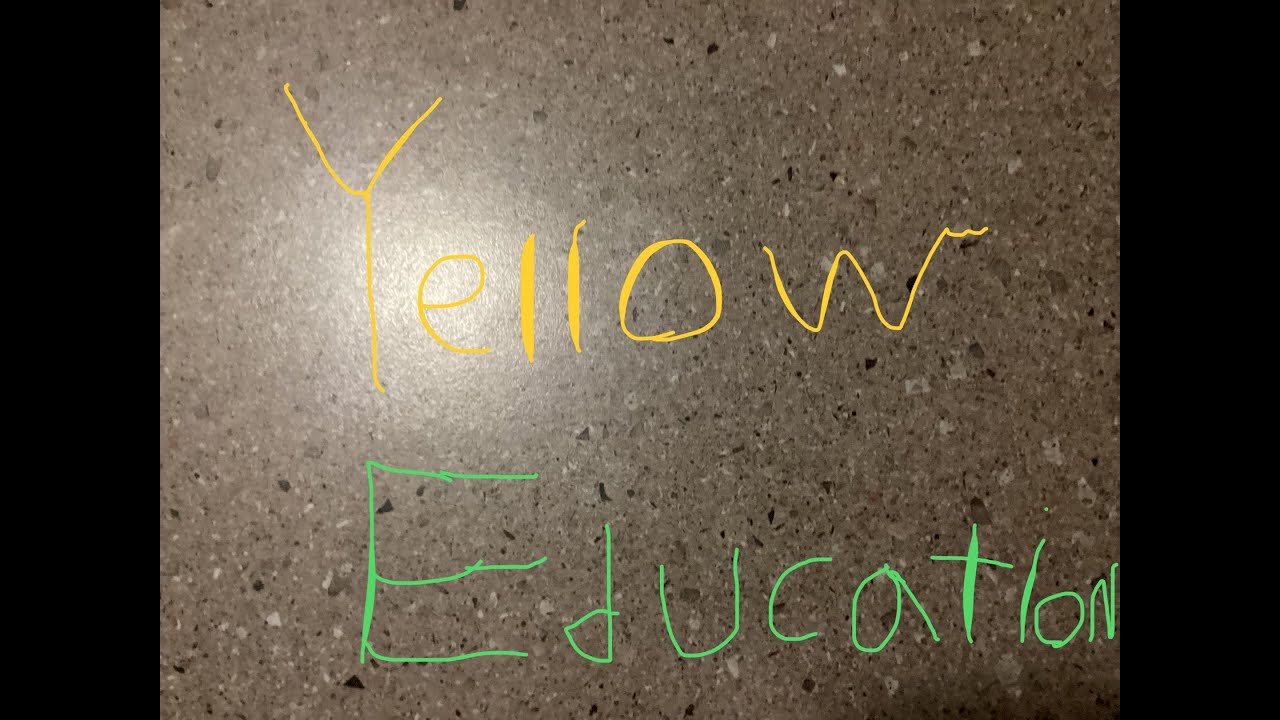 Yellow
Education